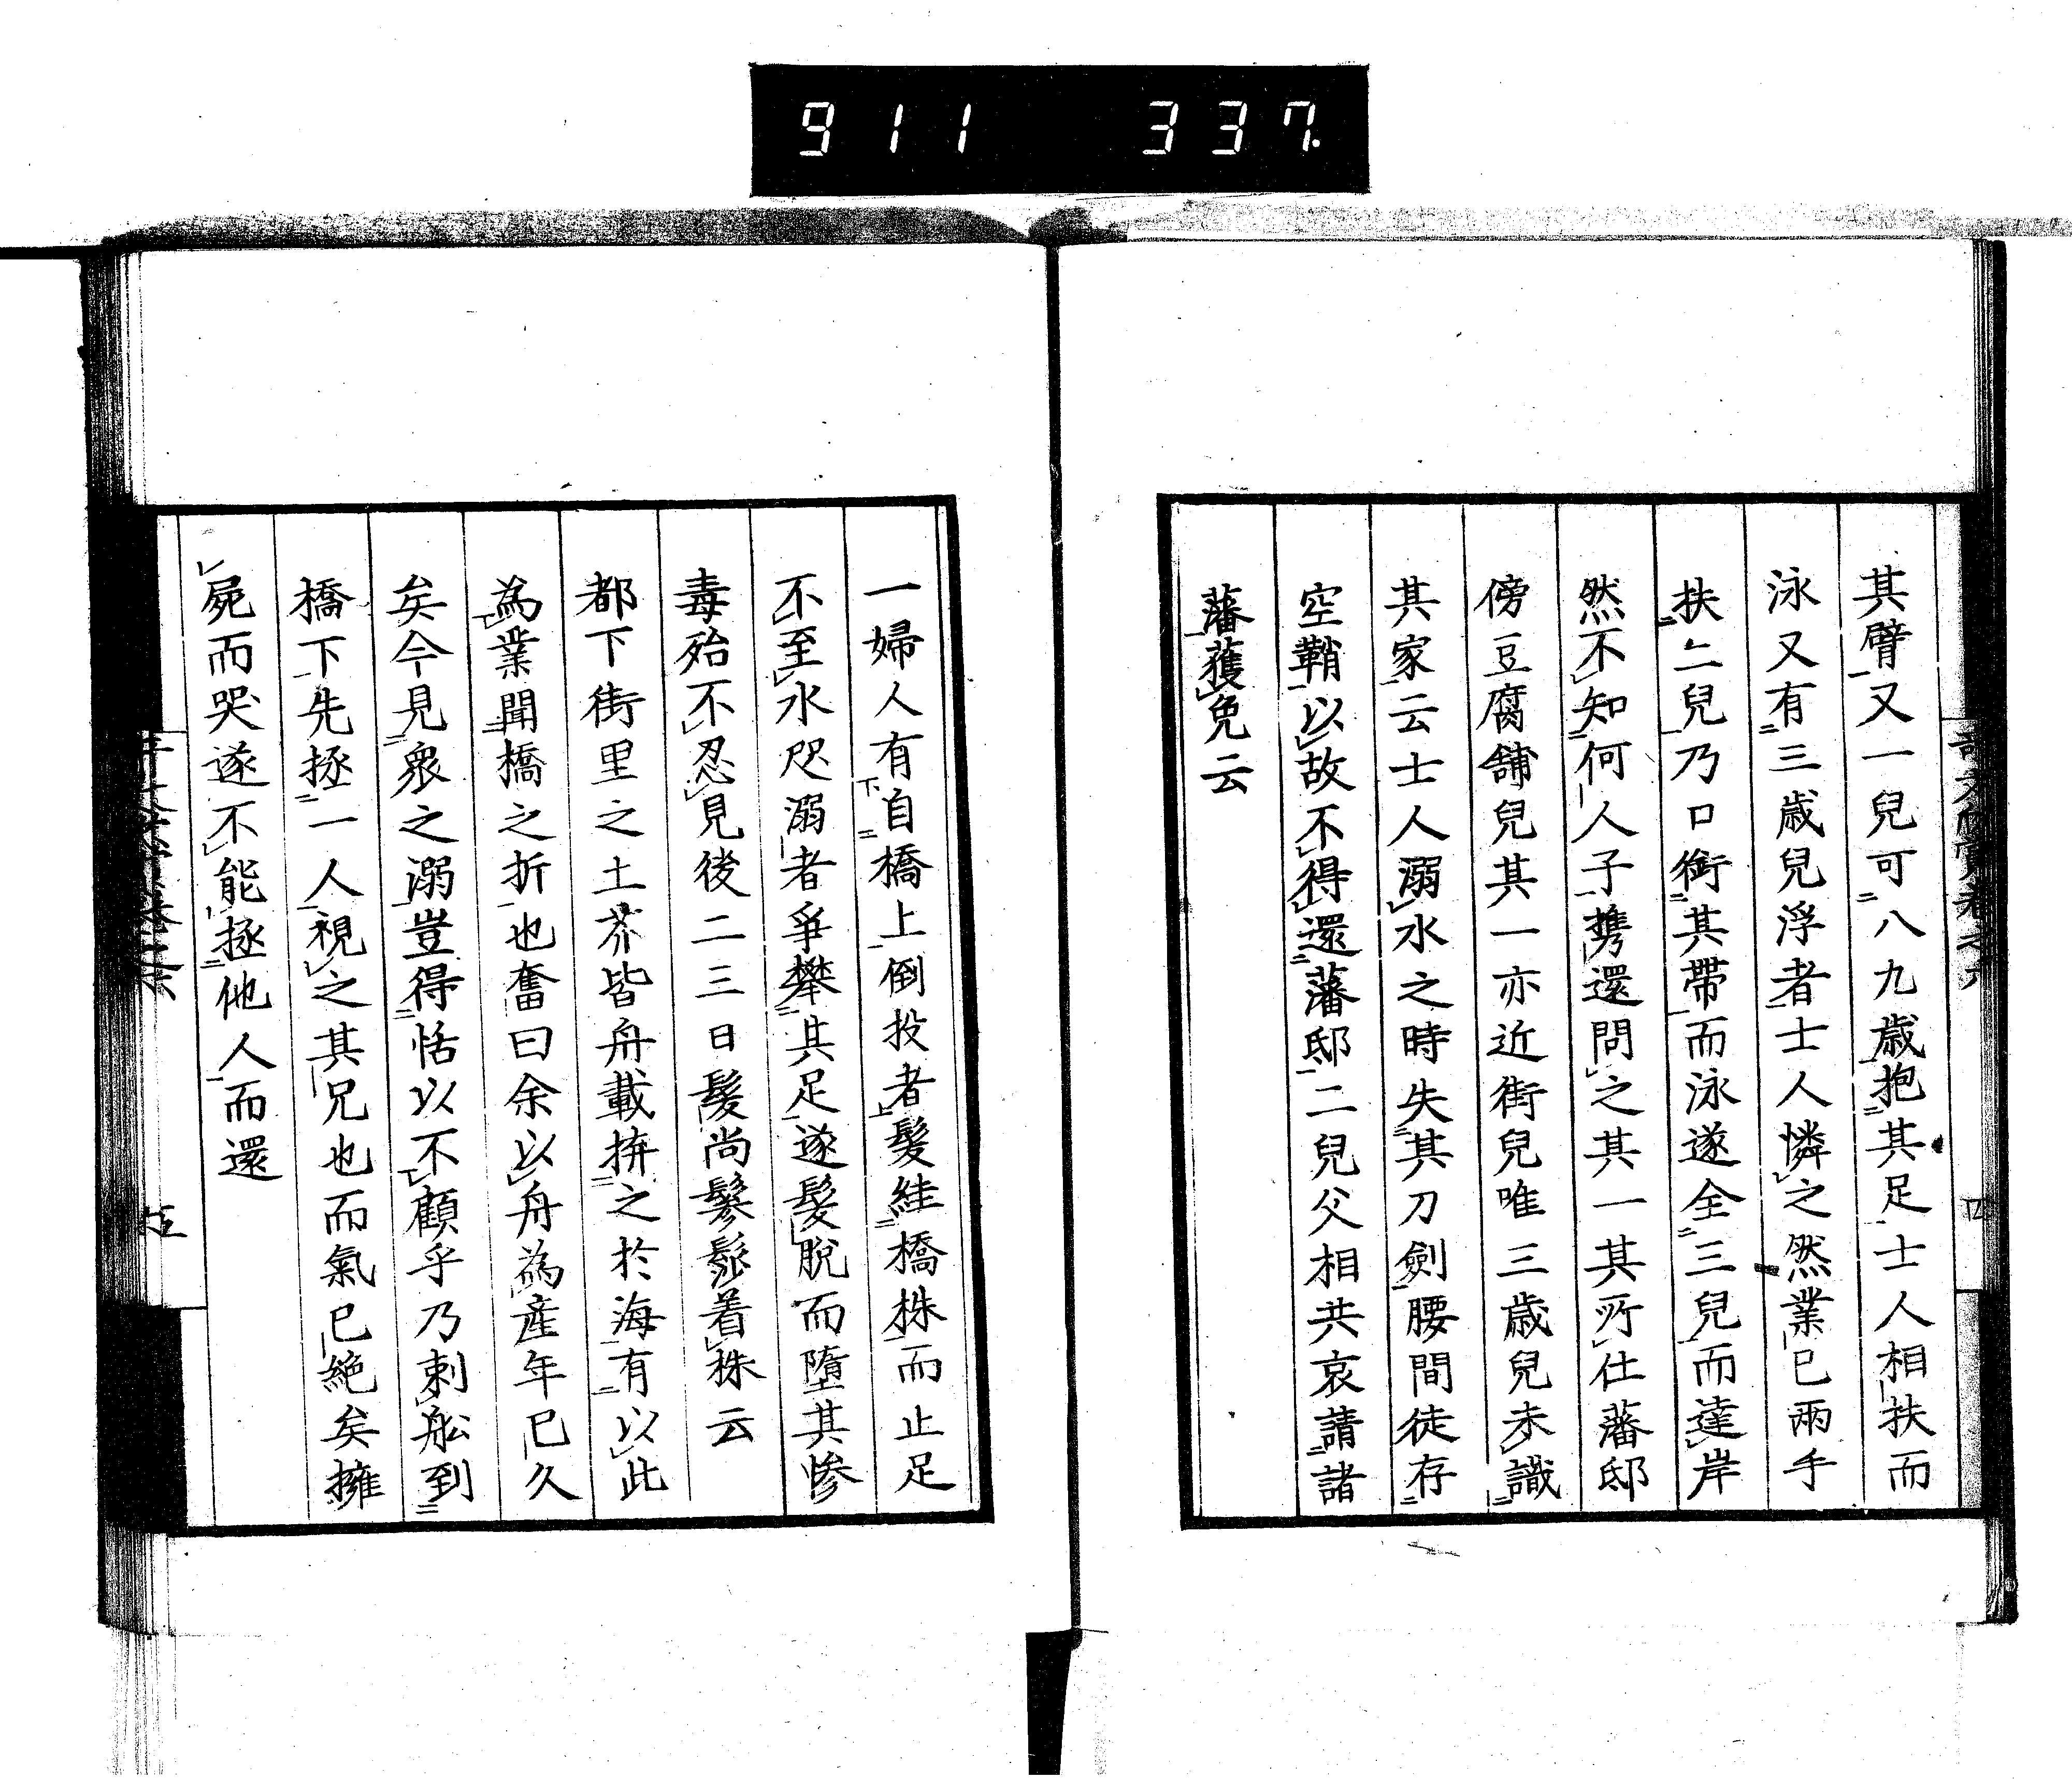 911 337.
其臂又一兒可八九歳抱其足士人相扶而
泳又有三歳兒浮者士人憐之然業已兩手
扶二兒乃口銜其帶而泳遂全三兒而達岸
然不知何人子携還問之其一其所仕藩邸
傍豆腐舗兒其一亦近街兒唯三歳兒未識
其家云士人溺水之時失其刀劍腰間徒存
空鞘以故不得還藩邸二兒父相共哀請諸
藩獲免云
一婦人有自橋上倒投者髮絓橋株而止足
不至水咫溺者爭攀其足遂髮脱而墮其惨
毒殆不忍見後二三日髮尚鬖髿着株云
都下街里之土芥皆舟載捹之於海有以此
為業聞橋之折也奮曰余以舟為産年已久
矣今見衆之溺豈得恬以不顧乎乃刺舩到
橋下先拯一人視之其兄也而氣已絶矣擁
屍而哭遂不能拯他人而還
五